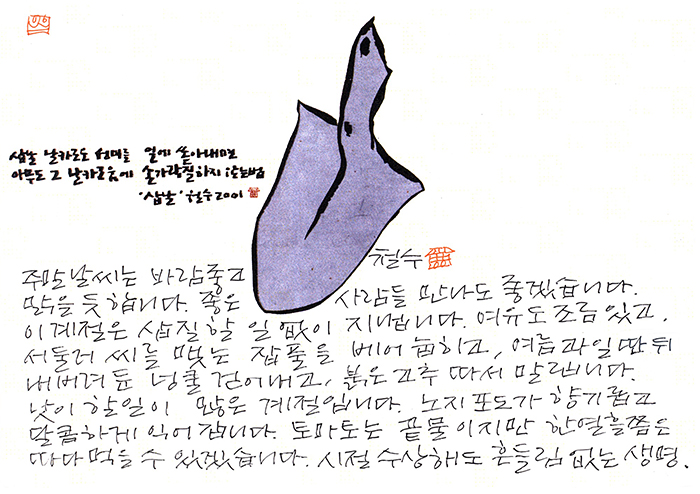 삽날 날카로운 성미를 일에 쏟아내면
아무도 그 날카로움에 손가락질하지 않는법
'삽날' 철수 2001
철수
주말날씨는 바람좋고
맑을 듯 합니다. 좋은 사람들 만나도 좋겠습니다.
이 계절은 삽질 할 일 없이 지냅니다. 여유도 조금 있고,
서둘러 씨를 맺는 잡풀을 베어 눕히고, 여름과일 딴 뒤
내버려 둔 넝쿨 걷어내고, 붉은 고추 따서 말립니다.
낫이 할일이 많은 계절입니다. 노지포도가 향기롭고
달콤하게 익어 갑니다. 토마토는 끝물이지만 한열흘쯤은
따다 먹을 수 있겠습니다. 시절 수상해도 흔들림 없는 생명.